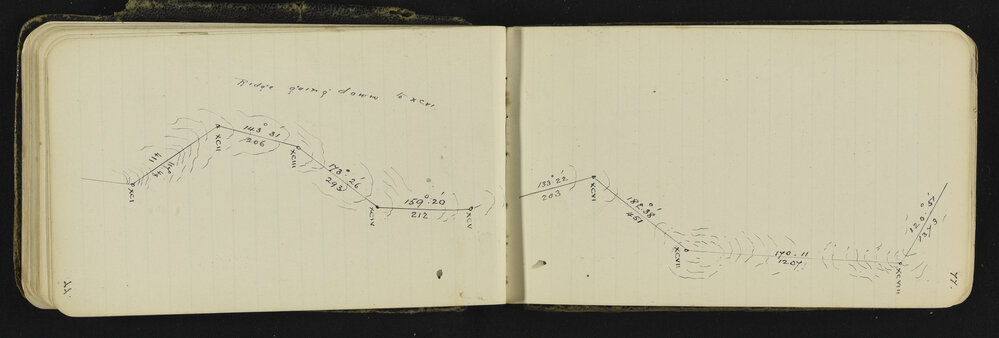 Ridge going down to XCVI
XCI
XCII
143° 31'
206
XCIII
173° 26'
293
XCIV
159° 20'
212
XCV
133° 22'
203
XCVI
182° 38'
451
XCVII
170 . 11
1207
XCVIII
120° 51'
77.